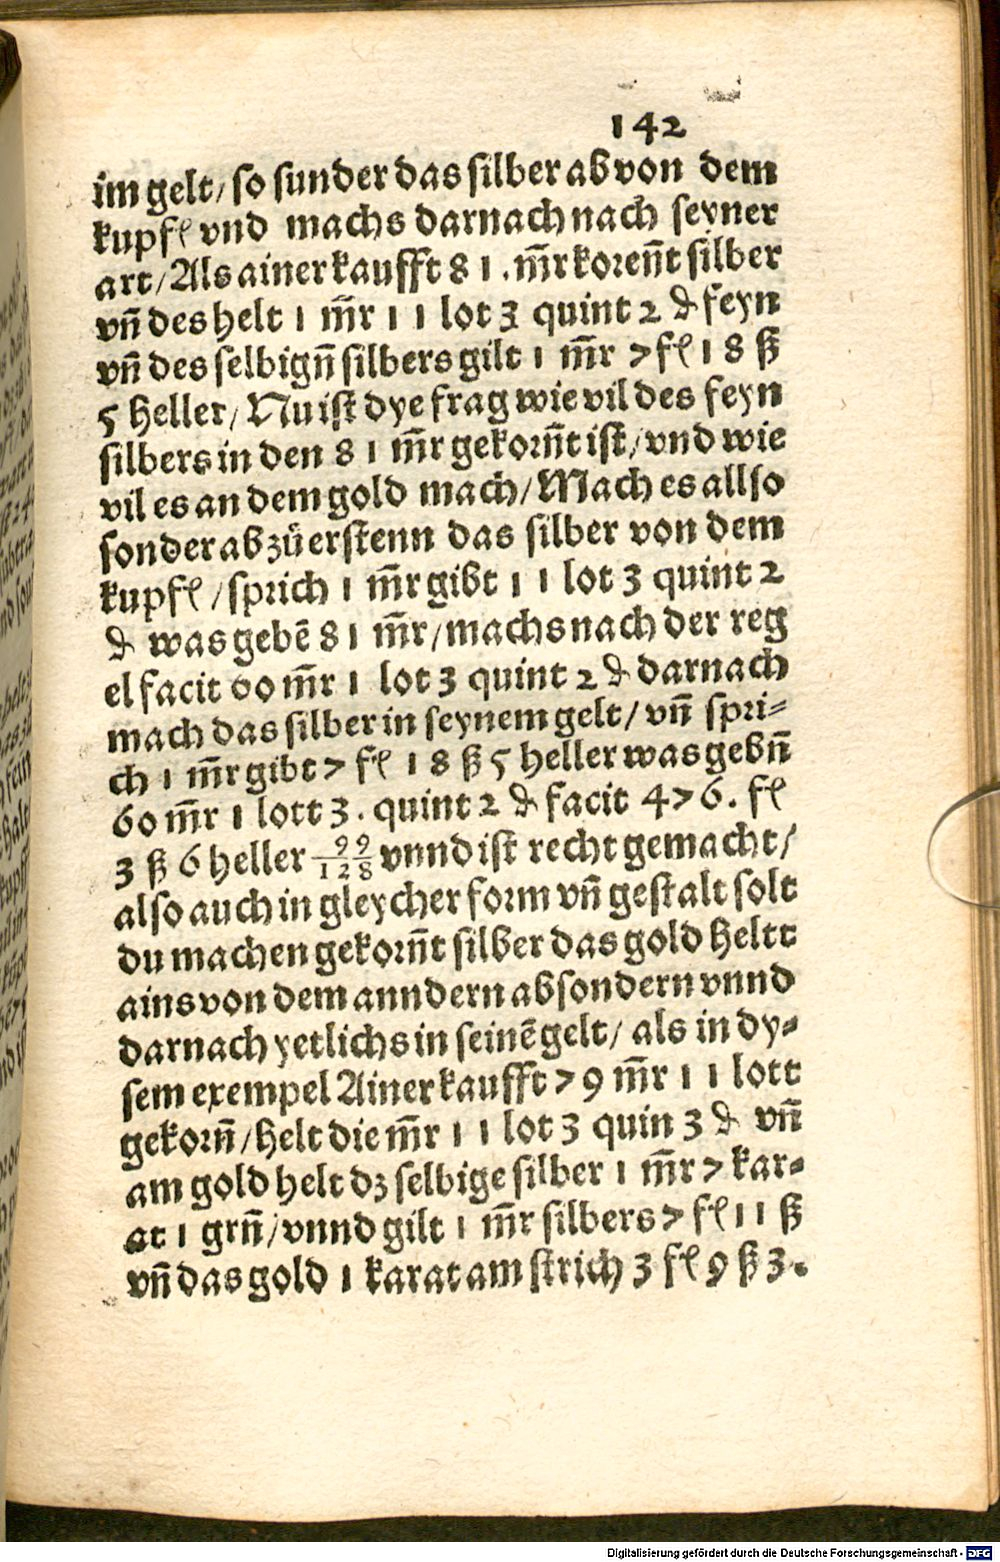 142
im gelt/ so sunder das silber ab von dem
kupfꝭ vnd machs darnach nach seyner
art/ Als ainer kaufft 81. m̄r korenn̄t silber
vn̄ des helt 1 m̄r 11 lot 3 quint 2 ₰ feyn
vn̄ des selbign̄ silbers gilt 1 m̄r 7 fl 18 ß
5 heller/ Nu ist dye frag wie vil des feyn
silbers in den 81 m̄r gekorn̄t ist/ vnd wie
vil es an dem gold mach/ Mach es allso
sonder ab zů erstenn das silber von dem
kupfꝭ/ sprich 1 m̄r gibt 11 lot 3 quint 2
₰ was gebē 81 m̄r/ machs nach der reg
el facit 60 m̄r 1 lot 3 quint 2 ₰ darnach
mach das silber in seynem gelt/ vn̄ spri⸗
ch 1 m̄r gibt 7 fl 18 ß 5 heller was gebn̄
60 m̄r 1 lott 3. quint 2 ₰ facit 476. fl
3 ß 6 heller 99/128 vnnd ist recht gemacht/
also auch in gleycher form vn̄ gestalt solt
du machen gekorn̄t silber das gold heltt
ains von dem anndern absondern vnnd
darnach yetlichs in seinē gelt/ als in dy⸗
sem exempel Ainer kaufft 79 m̄r 11 lott
gekorn̄/ helt die m̄r 11 lot 3 quin 3 ₰ vn̄
am gold helt dz selbige silber 1 m̄r 7 kar⸗
at 1 grn̄/ vnnd gilt 1 m̄r silbers 7 fl 11 ß
vn̄ das gold 1 karat am strich 3 fl 9 ß 3.
Digitalisierung gefördert durch die Deutsche Forschungsgemeinschaft - DFG